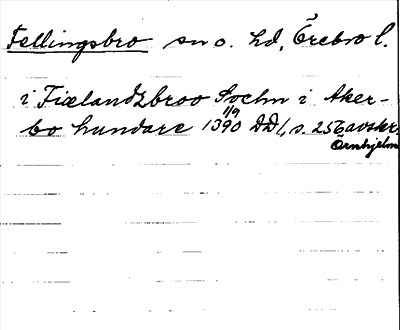 Fellingsbro sn o. hd, Örebro l.
i Fiælandzbroo Sochn i Aker-
bo hundare 1390 1/9 DD 1, s. 256 avskr.
Örnhjelm